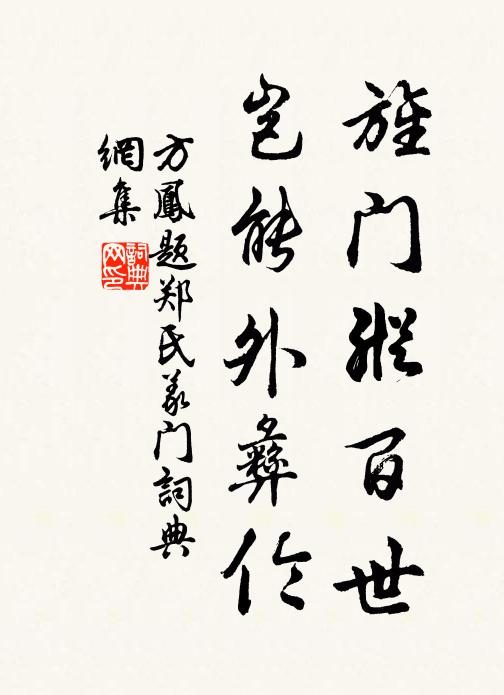 旌门縱百世
岂能外彝伦
方鳳题郑氏義门詞典
網集
詞典
网印